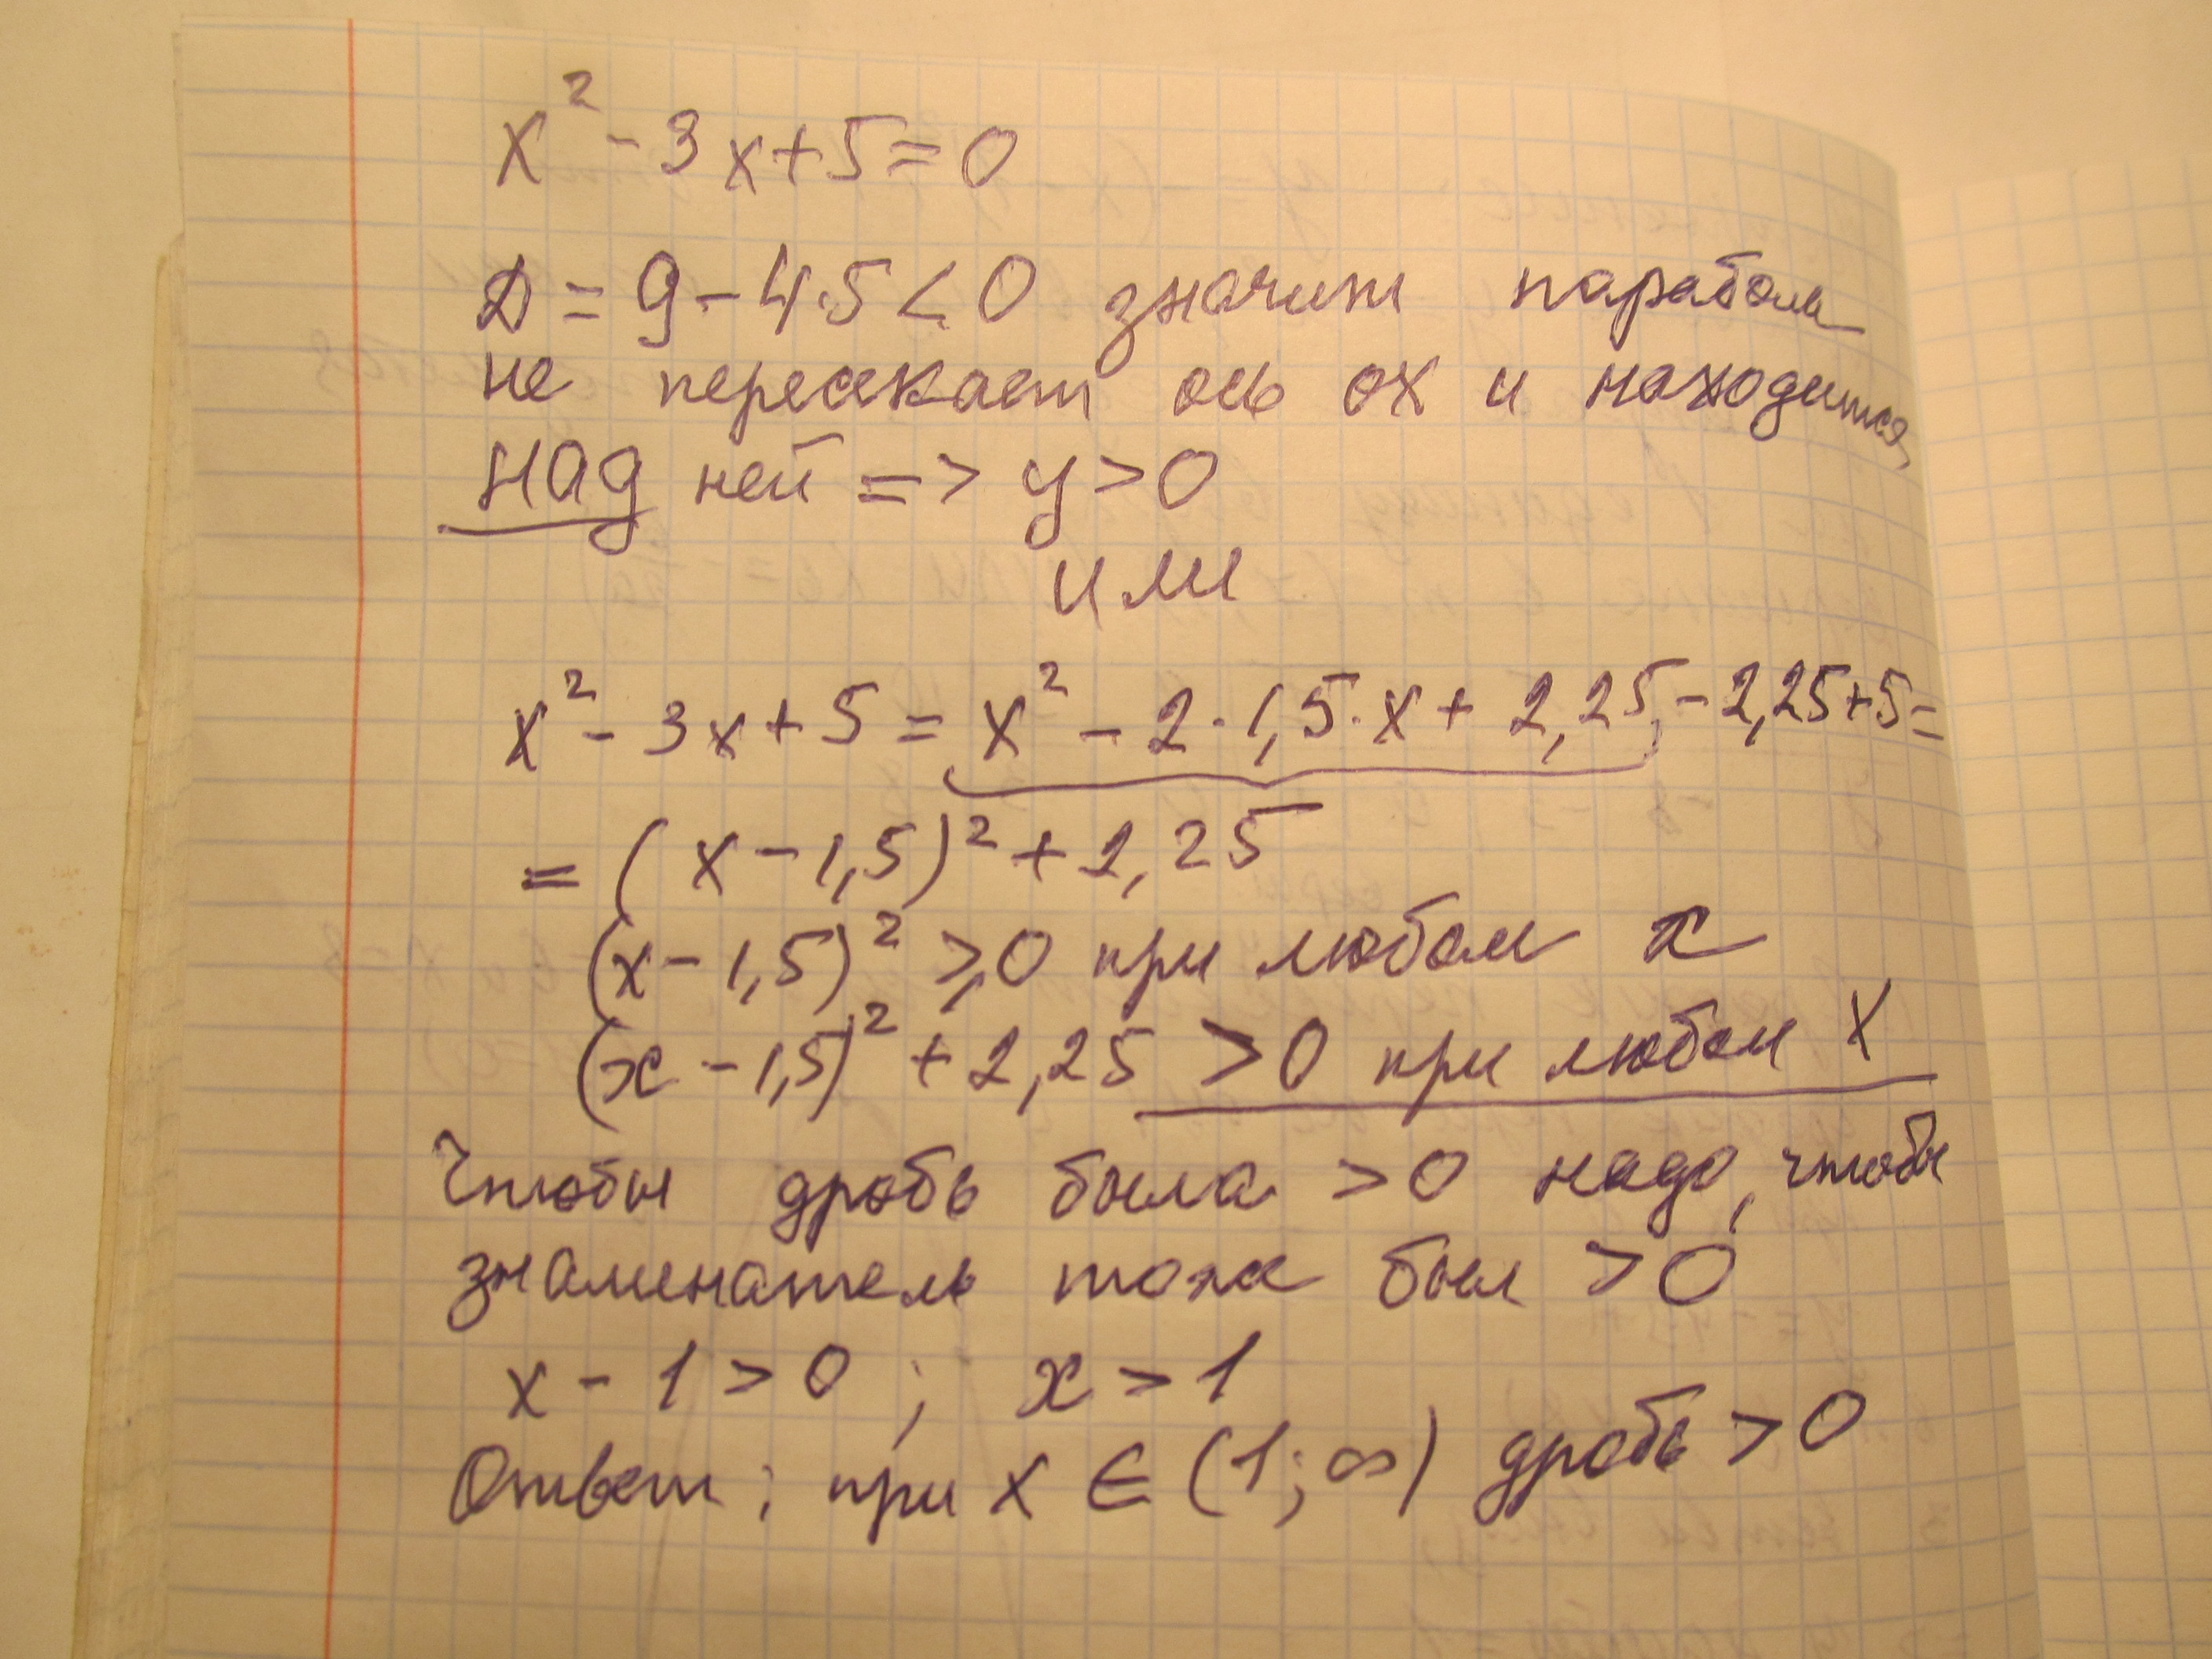 x² - 3x + 5 = 0
D = 9 - 4·5 < 0 значит парабола
не пересекает ось ох и находится
над ней => y > 0
или
x² - 3x + 5 = x² - 2·1,5·x + 2,25 - 2,25 + 5 =
= (x - 1,5)² + 2,25
(x - 1,5)² ⩾ 0 при любом x
(x - 1,5)² + 2,25 > 0 при любом x
Чтобы дробь была > 0 надо, чтобы
знаменатель тоже был > 0
x - 1 > 0 ; x > 1
Ответ: при x ∈ (1; ∞) дробь > 0